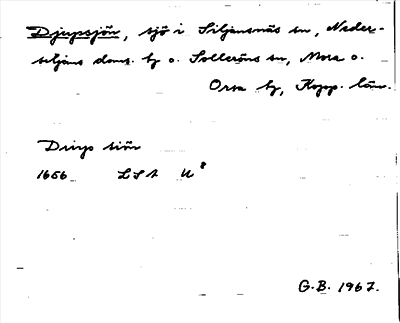 Djupsjön, sjö i Siljansnäs sn, Neder-
siljans doms. tg o. Solleröns sn, Mora o.
Orsa tg, Kopp. län.
Diups siön
1656 LSA U⁸
G.B. 1967.